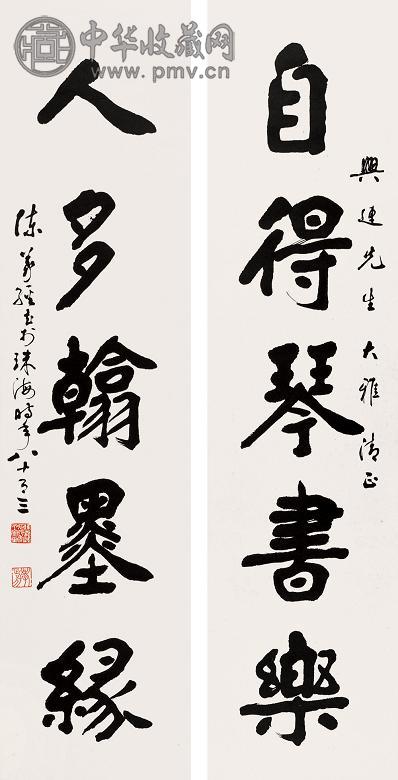 中华收藏网
www.pmv.cn
自得琴書樂
興連先生大雅清正
人多翰墨緣
陳義經書於珠海時年八十有三